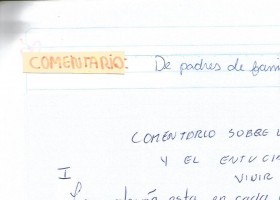 COMENTARIO: De padres de fami
COMENTARIO SOBRE L
Y EL ENTUCI
I VIVIR
esta en cada